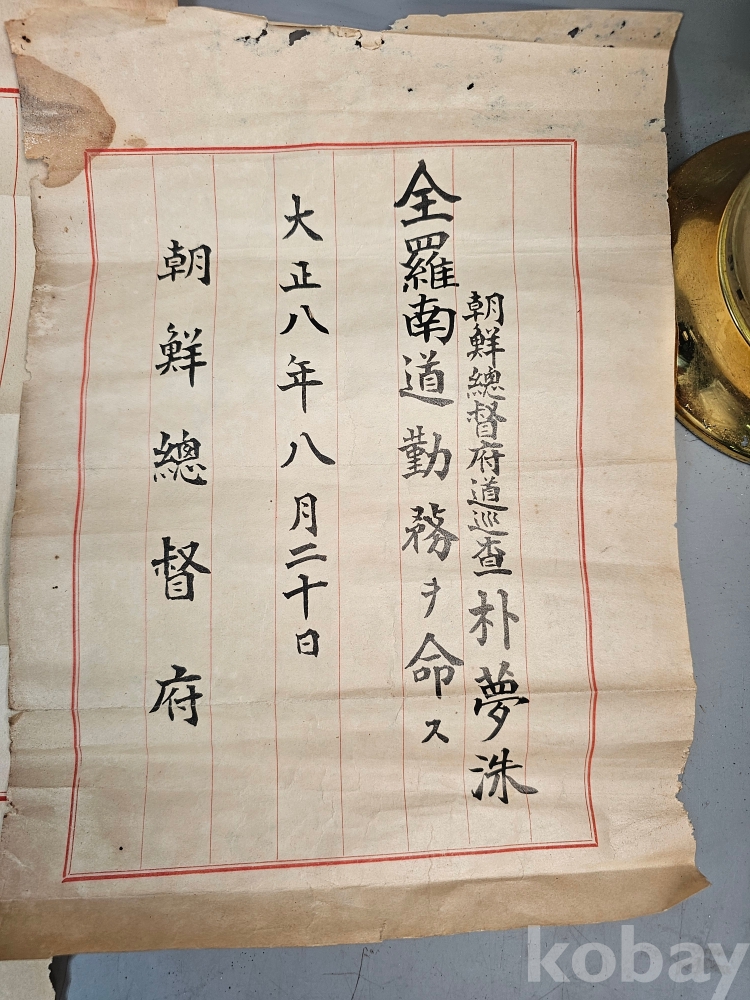 朝鮮總督府道巡査 朴夢洙
全羅南道勤務ヲ命ス
大正八年八月二十日
朝鮮總督府
kobay